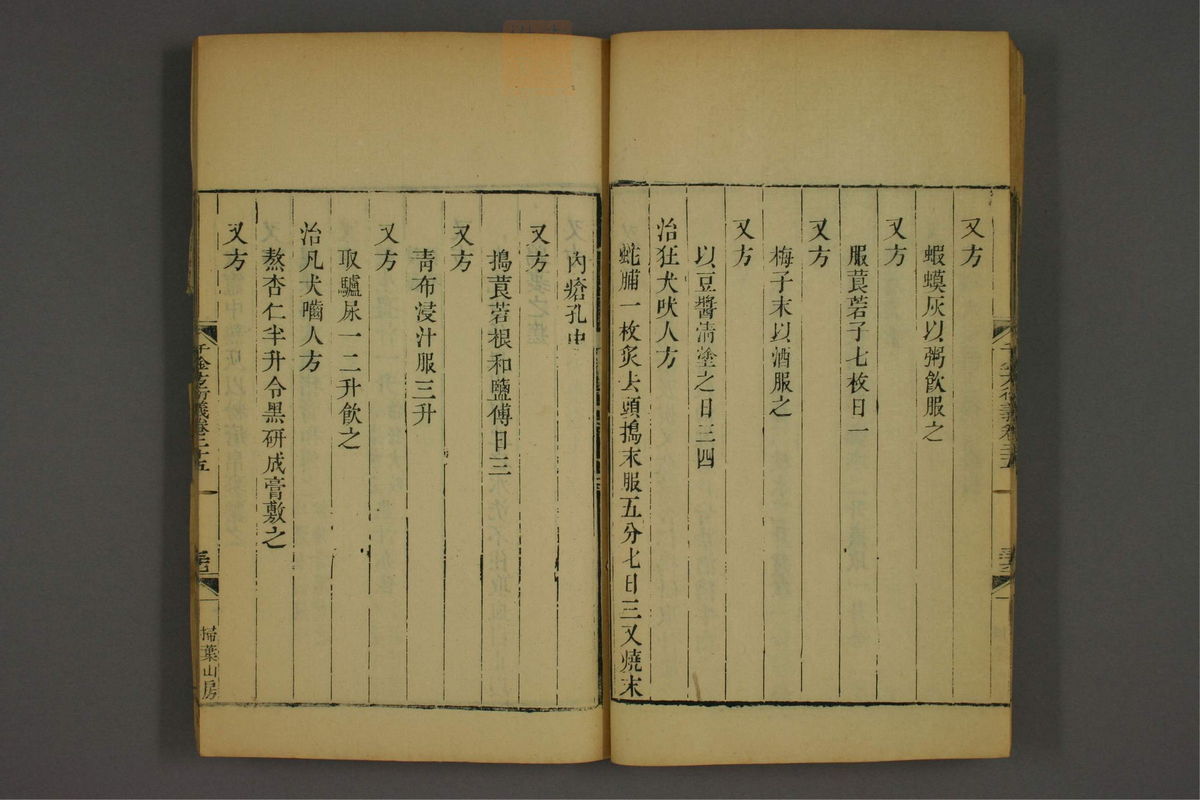 又方
蝦蟆灰以粥飲服之
又方
服莨菪子七枚日一
又方
梅子末以酒服之
又方
以豆醬清塗之日三四
治狂犬吠人方
蛇脯一枚炙去頭搗末服五分匕日三又燒末
內瘡孔中
又方
搗莨菪根和鹽傅日三
又方
青布浸汁服三升
又方
取驢尿一二升飲之
治凡犬嚙人方
熬杏仁半升令黑研成膏敷之
又方
千金方衍義卷二十五
掃葉山房